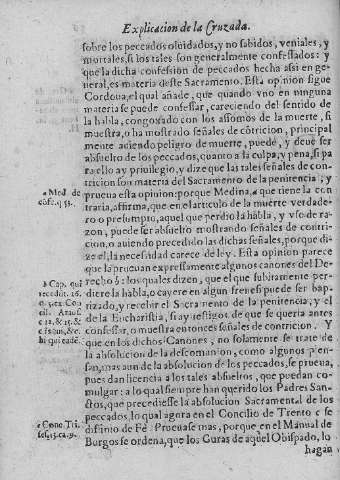 Explicacion de la Cruzada.
sobre los peccados oluidados, y no sabidos, veniales, y
mortales, si los tales son generalmente confessados: y
que la dicha confession de peccados hecha assi en ge-
neral, es materia deste Sacramento. Esta opinion sigue
Cordoua, el qual añade, que quando vno en ninguna
materia se puede confessar, careciendo del sentido de
la habla, congoxado con los assomos de la muerte, si
muestra, o ha mostrado señales de cõtricion, principal
mente auiendo peligro de muerte, puede, y deue ser
absuelto de los peccados, quanto a la culpa, y pena, si pa
ra ello ay priuilegio, y dize que las tales señales de con-
tricion son materia del Sacramento de la penitencia; y
prueua esta opinion: porque Medina, a que tiene la con
traria, afirma, que en el articulo de la muerte verdade-
ro o presumpto, aquel que perdio la habla, y vso de ra-
zon, puede ser absuelto mostrando señales de contri-
cion, o auiendo precedido las dichas señales, porque di-
ze el, la necessidad carece de ley. Esta opinion parece
que la prueuan expressamente algunos canones del De
recho b: los quales dizen, que el que subitamente per-
diere la habla, o cayere en algun frenesi puede ser bap-
tizado, y recebir el Sacramento de la penitencia, y el
de la Eucharistia, si ay testigos de que se queria antes
confessar, o muestra entonces señales de contricion. Y
que en los dichos Canones, no solamente se trate de
la absolucion de la descomunion, como algunos pien-
san, mas aun de la absolucion de los peccados, se prueua,
pues dan licencia a los tales absueltos, que puedan co-
mulgar: a lo qual siempre han querido los Padres San-
ctos, que precediesse la absolucion Sacramental de los
peccados, lo qual agora en el Concilio de Trento c se
difinio de Fè. Prueuase mas, porque en el Manual de
Burgos se ordena, que los Curas de aquel Obispado, lo
hagan
a Med. de
cõfe. q
b Cap. qui
recedit. 26.
c Conc. Tri.